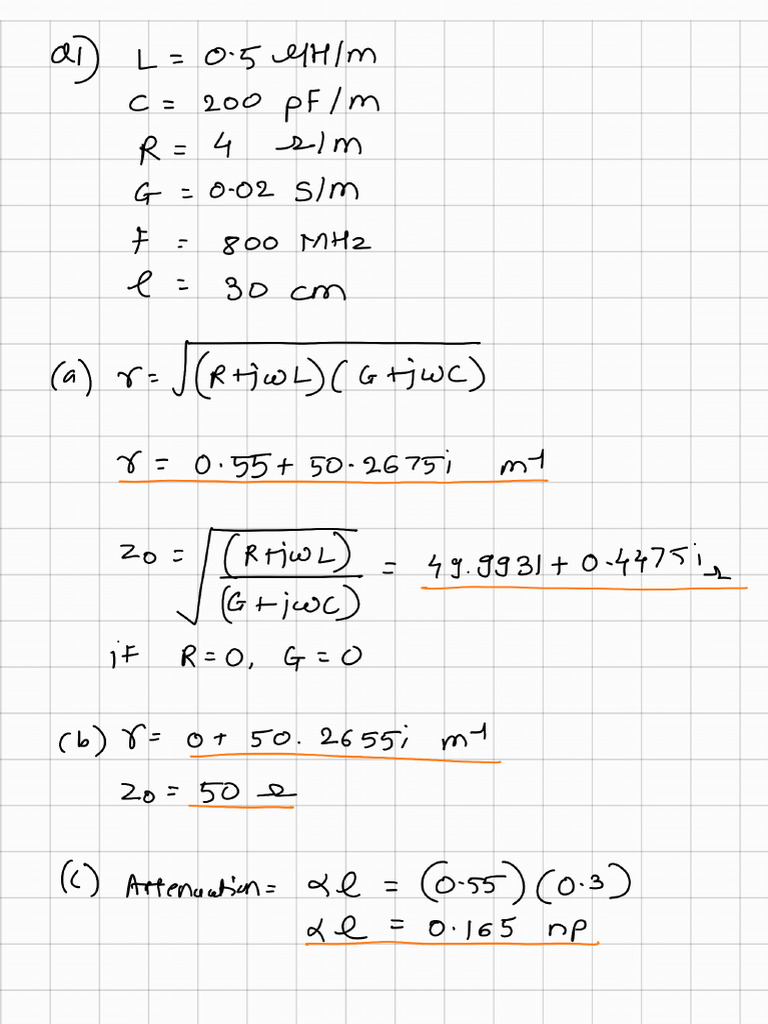 Q1) L = 0.5 μH/m
C = 200 pF/m
R = 4 Ω/m
G = 0.02 S/m
F = 800 MHz
l = 30 cm
(a) γ = √(R+jωL)(G+jωC)
γ = 0.55 + 50.2675i m⁻¹
Z0 = √(R+jωL)/(G+jωC) = 49.9931 + 0.4475i Ω
if R=0, G=0
(b) γ = 0 + 50.2655i m⁻¹
Z0 = 50 Ω
(c) Attenuation = αl = (0.55)(0.3)
αl = 0.165 np